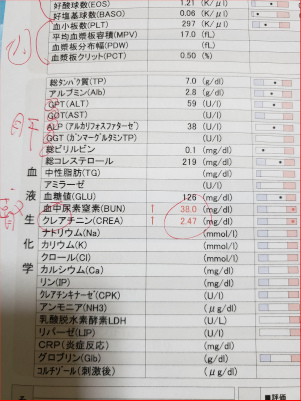 好酸球数(EOS) 1.21 (K/μl)
好塩基球数(BASO) 0.06 (K/μl)
血小板数(PLT) 297 (K/μl)
平均血小板容積(MPV) 17.0 (fL)
血小板分布幅(PDW) (fL)
血小板クリット(PCT) 0.50 (%)
総タンパク質(TP) 7.0 (g/dl)
アルブミン(Alb) 2.8 (g/dl)
GPT(ALT) 59 (U/l)
GOT(AST) (U/l)
ALP(アルカリフォスファターゼ) 38 (U/l)
GGT(ガンマーグルタミンTP) (U/l)
総ビリルビン 0.1 (mg/dl)
総コレステロール 219 (mg/dl)
中性脂肪(TG) (mg/dl)
アミラーゼ (U/l)
血糖値(GLU) 126 (mg/dl)
血中尿素窒素(BUN) ↑ 38.0 (mg/dl)
クレアチニン(CREA) ↑ 2.47 (mg/dl)
ナトリウム(Na) (mmol/l)
カリウム(K) (mmol/l)
クロール(Cl) (mmol/l)
カルシウム(Ca) (mg/dl)
リン(IP) (mg/dl)
クレアチンキナーゼ(CPK) (U/l)
アンモニア(NH3) (μg/dl)
乳酸脱水素酵素LDH (U/L)
リパーゼ(LIP) (U/l)
CRP(炎症反応) (mg/dl)
グロブリン(Glb) (g/dl)
コルチゾール(刺激後) (μg/dl)
血液生化学
■評価